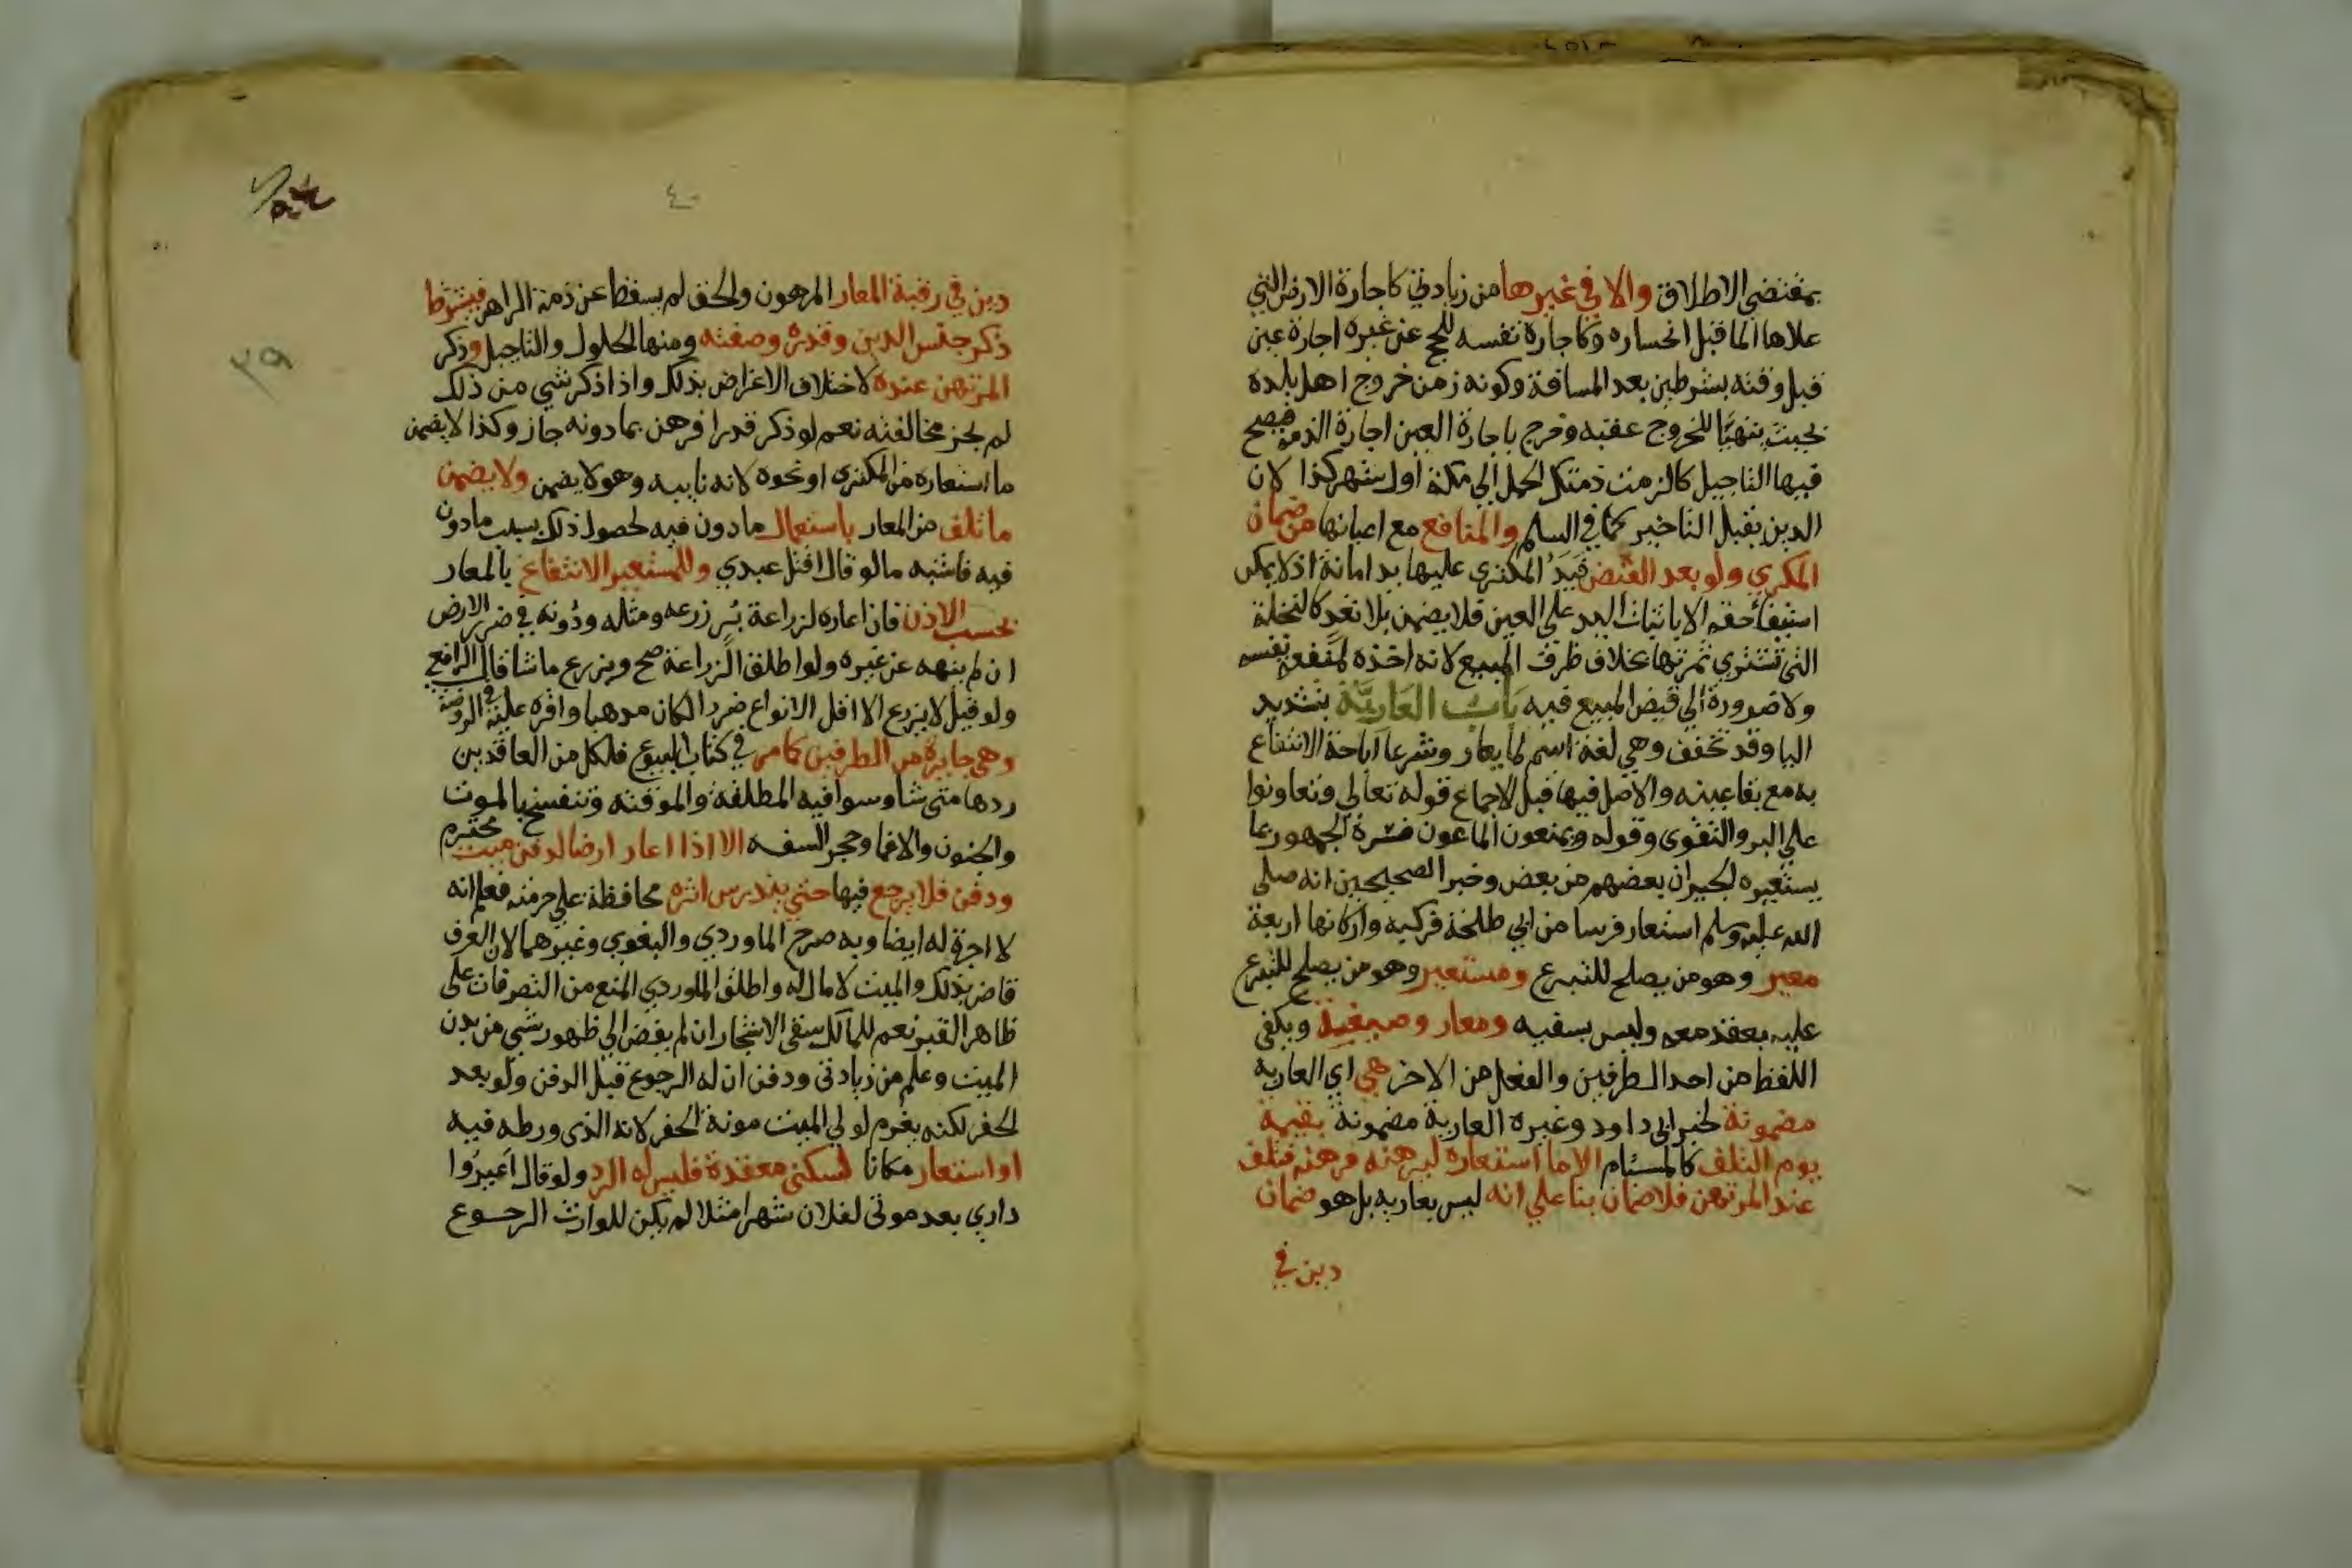 بمقتضي الاطلاق والا في غيرها من زيادتي كاجارة الارض التي
علاها الما قبل انحساره وكاجارة نفسه للحج عن غيره اجارة عين
قبل وقته بشرطين بعد المسافة وكونه زمن خروج اهل بلده
بحيث يتهيا للخروج عقبه وخرج باجارة العين اجارة الذمة فيصح
فيها التاجيل كالزمت ذمتك الحمل الي مكة اول شهر كذا لان
الدين يقبل التاخير كما في السلم والمنافع مع اعيانها من ضمان
المكري ولو بعد القبض فيد المكتري عليها يد امانة اذ لا يمكن
استيفا حقه الا باثبات اليد علي العين فلا يضمن بلا تعد كالنخلة
التي تشتري ثمرتها بخلاف ظرف المبيع لانه اخذه لمنفعة نفسه
ولا ضرورة الي قبض المبيع فيه باب العارية بتشديد
اليا وقد تخفف وهي لغة اسم لما يعار وشرعا اباحة الانتفاع
به مع بقا عينه والاصل فيها قبل الاجماع قوله تعالي وتعاونوا
علي البر والتقوي وقوله ويمنعون الماعون فسره الجمهور بما
يستعيره الجيران بعضهم من بعض وخبر الصحيحين انه صلي
الله عليه وسلم استعار فرسا من ابي طلحة فركبه واركانها اربعة
معير وهو من يصلح للتبرع ومستعير وهو من يصلح للتبرع
عليه بعقد معه وليس بسفيه ومعار وصيغية ويكفي
اللفظ من احد الطرفين والفعل من الاخر هي اي العارية
مضمونة لخبر ابي داود وغيره العارية مضمونة بقيمة
يوم التلف كالمستام الا ما استعاره ليرهنه فرهنه فتلف
عند المرتهن فلا ضمان بنا علي انه ليس بعاريه بل هو ضمان
دين في
٤٠
دين في رقبة المعار المرهون والحق لم يسقط عن ذمة الراهن فيشترط
ذكر جنس الدين وقدره وصفته ومنها الحلول والتاجيل وذكر
المرتهن عنده لاختلاف الاغراض بذلك واذا ذكر شي من ذلك
لم يجز مخالفته نعم لو ذكر قدرا فرهن بما دونه جاز وكذا لا يضمن
ما استعاره من المكتري او نحوه لانه نايبه وهو لا يضمن ولا يضمن
ما تلف من المعار باستعمال مادون فيه لحصول ذلك بسبب مادون
فيه فاشبه ما لو قال اقتل عبدي وللمستعير الانتفاع بالمعار
بحسب الاذن فان اعاره لزراعة بر زرعه ومثله ودونه في ضرر الارض
ان لم ينهه عن غيره ولو اطلق الزراعة صح ويزرع ما شا قال الرافعي
ولو قيل لا يزرع الا اقل الانواع ضررا لكان مذهبا واقره عليه في الروضة
وهي جايزة من الطرفين كما مر في كتاب البيوع فلكل من العاقدين
ردها متي شا وسوا فيه المطلقة والموقتة وتنفسخ بالموت
والجنون والاغما وحجر السفه الا اذا اعار ارضا لدفن ميت محترم
ودفن فلا يرجع فيها حتي يندرس اثره محافظة علي حرمته فعلم انه
لا اجرة له ايضا وبه صرح الماوردي والبغوي وغيرهما لان العرف
قاض بذلك والميت لا مال له واطلق الماوردي المنع من التصرفات علي
ظاهر القبر نعم للمالك سقي الاشجار ان لم يفض الي ظهور شي من بدن
الميت وعلم من زيادتي ودفن ان له الرجوع قبل الدفن ولو بعد
الحفر لكنه يغرم لولي الميت مونة الحفر لانه الذي ورطه فيه
او استعار مكانا لسكني معتدة فليس له الرد ولو قال اعيروا
داري بعد موتي لفلان شهرا مثلا لم يكن للوارث الرجوع
٣٩